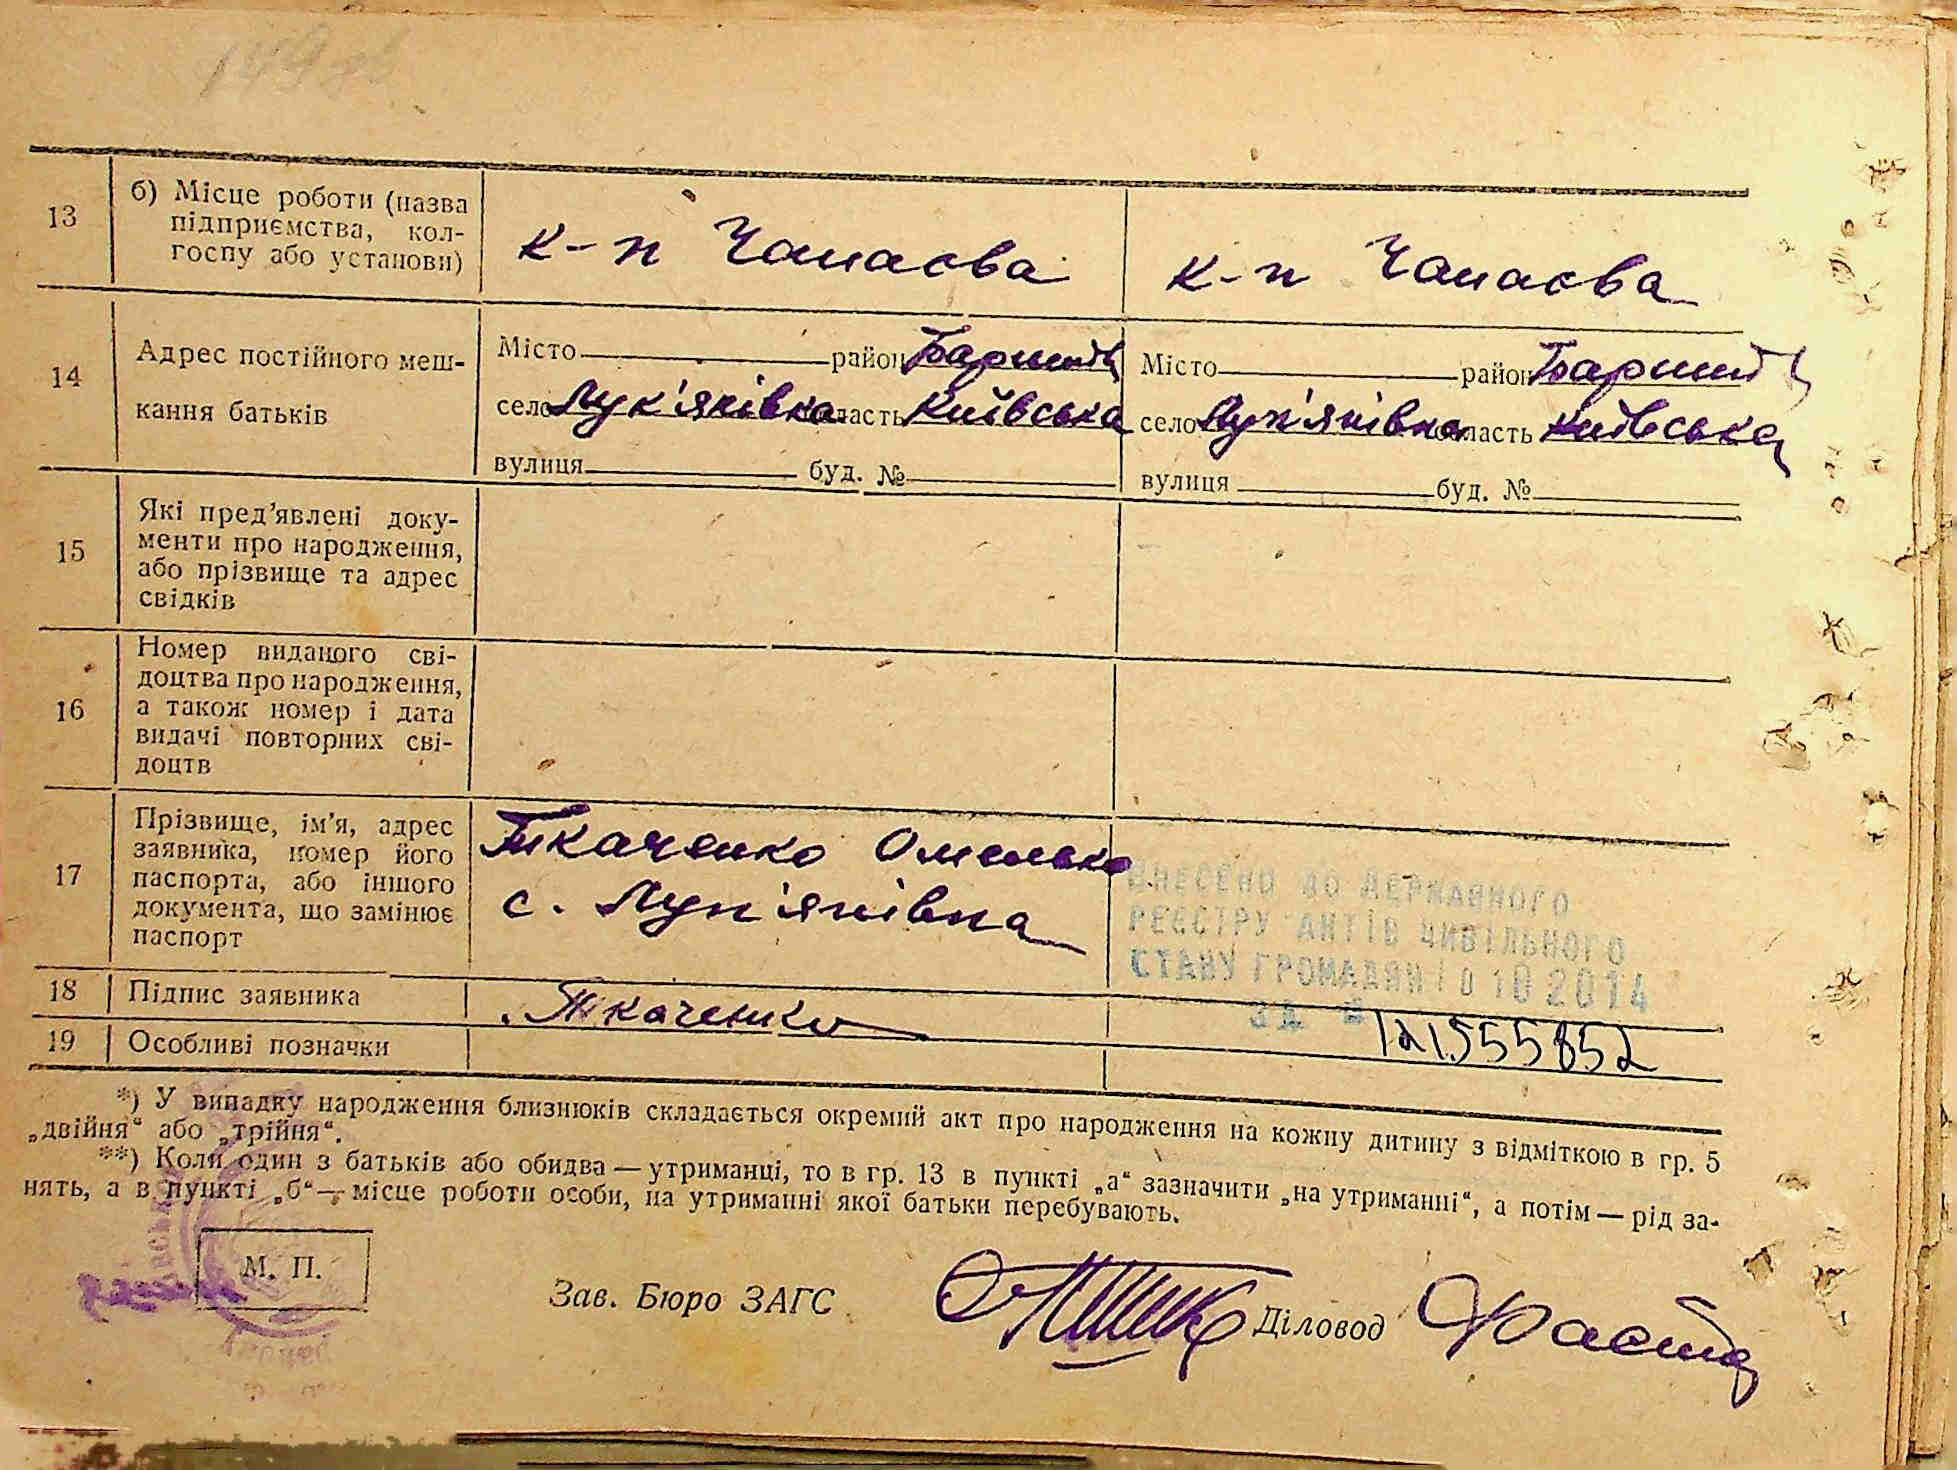 13
б) Місце роботи (назва
підприємства, кол-
госпу або установи)
к-п Чапаєва
к-п Чапаєва
14
Адрес постійного меш-
кання батьків
Місто район Баришів
село Лук'янівка область Київська
вулиця буд. №
Місто район Баришів
село Лук'янівка область Київська
вулиця буд. №
15
Які пред'явлені доку-
менти про народження,
або прізвище та адрес
свідків
16
Номер виданого сві-
доцтва про народження,
а також номер і дата
видачі повторних сві-
доцтв
17
Прізвище, ім'я, адрес
заявника, номер його
паспорта, або іншого
документа, що замінює
паспорт
Ткаченко Омелько
с. Лук'янівка
ВНЕСЕНО ДО ДЕРЖАВНОГО
РЕЄСТРУ АКТІВ ЦИВІЛЬНОГО
СТАНУ ГРОМАДЯН 10 10 2014
ЗА №
18 Підпис заявника
Ткаченко
19 Особливі позначки
*) У випадку народження близнюків складається окремий акт про народження на кожну дитину з відміткою в гр. 5
„двійня“ або „трійня“.
**) Коли один з батьків або обидва — утриманці, то в гр. 13 в пункті „а“ зазначити „на утриманні“, а потім — рід за-
нять, а в пункті „б“ — місце роботи особи, на утриманні якої батьки перебувають.
М. П.
Зав. Бюро ЗАГС
Діловод